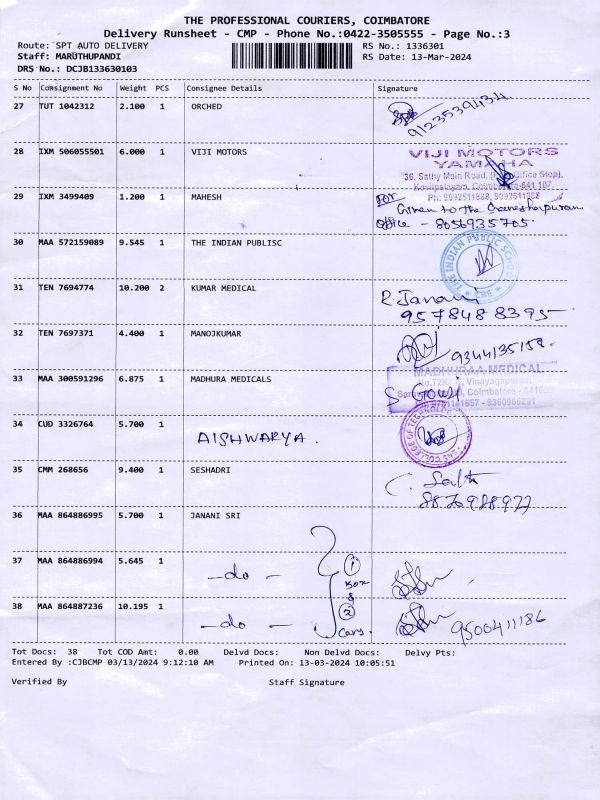 THE PROFESSIONAL COURIERS, COIMBATORE
Delivery Runsheet - CMP - Phone No.:0422-3505555 - Page No.:3
Route: SPT AUTO DELIVERY RS No.: 1336301
Staff: MARUTHUPANDI RS Date: 13-Mar-2024
DRS No.: DCJB133630103
S No Consignment No Weight PCS Consignee Details Signature
27 TUT 1042312 2.100 1 ORCHED
28 IXM 506055501 6.000 1 VIJI MOTORS
VIJI MOTORS
YAMAHA
36, Sathy Main Road, Office Stop),
Kovilpalayam, Coimbatore-641 107.
Ph: 9092511888, 9092611888
29 IXM 3499409 1.200 1 MAHESH
For
Given to the Ganeshapuram
office - 8056935705
30 MAA 572159089 9.545 1 THE INDIAN PUBLISC
THE INDIAN PUBLIC SCHOOL
CBE
31 TEN 7694774 10.200 2 KUMAR MEDICAL
R. Janani
957848 8395
32 TEN 7697371 4.400 1 MANOJKUMAR
9344135158.
33 MAA 300591296 6.875 1 MADHURA MEDICALS
MADHURAA MEDICAL
Vinayagapuram,
Coimbatore
34 CUD 3326764 5.700 1 AISHWARYA.
SNS COLLEGE OF TECHNOLOGY
35 CMM 268656 9.400 1 SESHADRI
36 MAA 864886995 5.700 1 JANANI SRI
37 MAA 864886994 5.645 1 -do-
① Box
&
②
38 MAA 864887236 10.195 1 -do-
9500411186
Tot Docs: 38 Tot COD Amt: 0.00 Delvd Docs: Non Delvd Docs: Delvy Pts:
Entered By :CJBCMP 03/13/2024 9:12:10 AM Printed On: 13-03-2024 10:05:51
Verified By Staff Signature